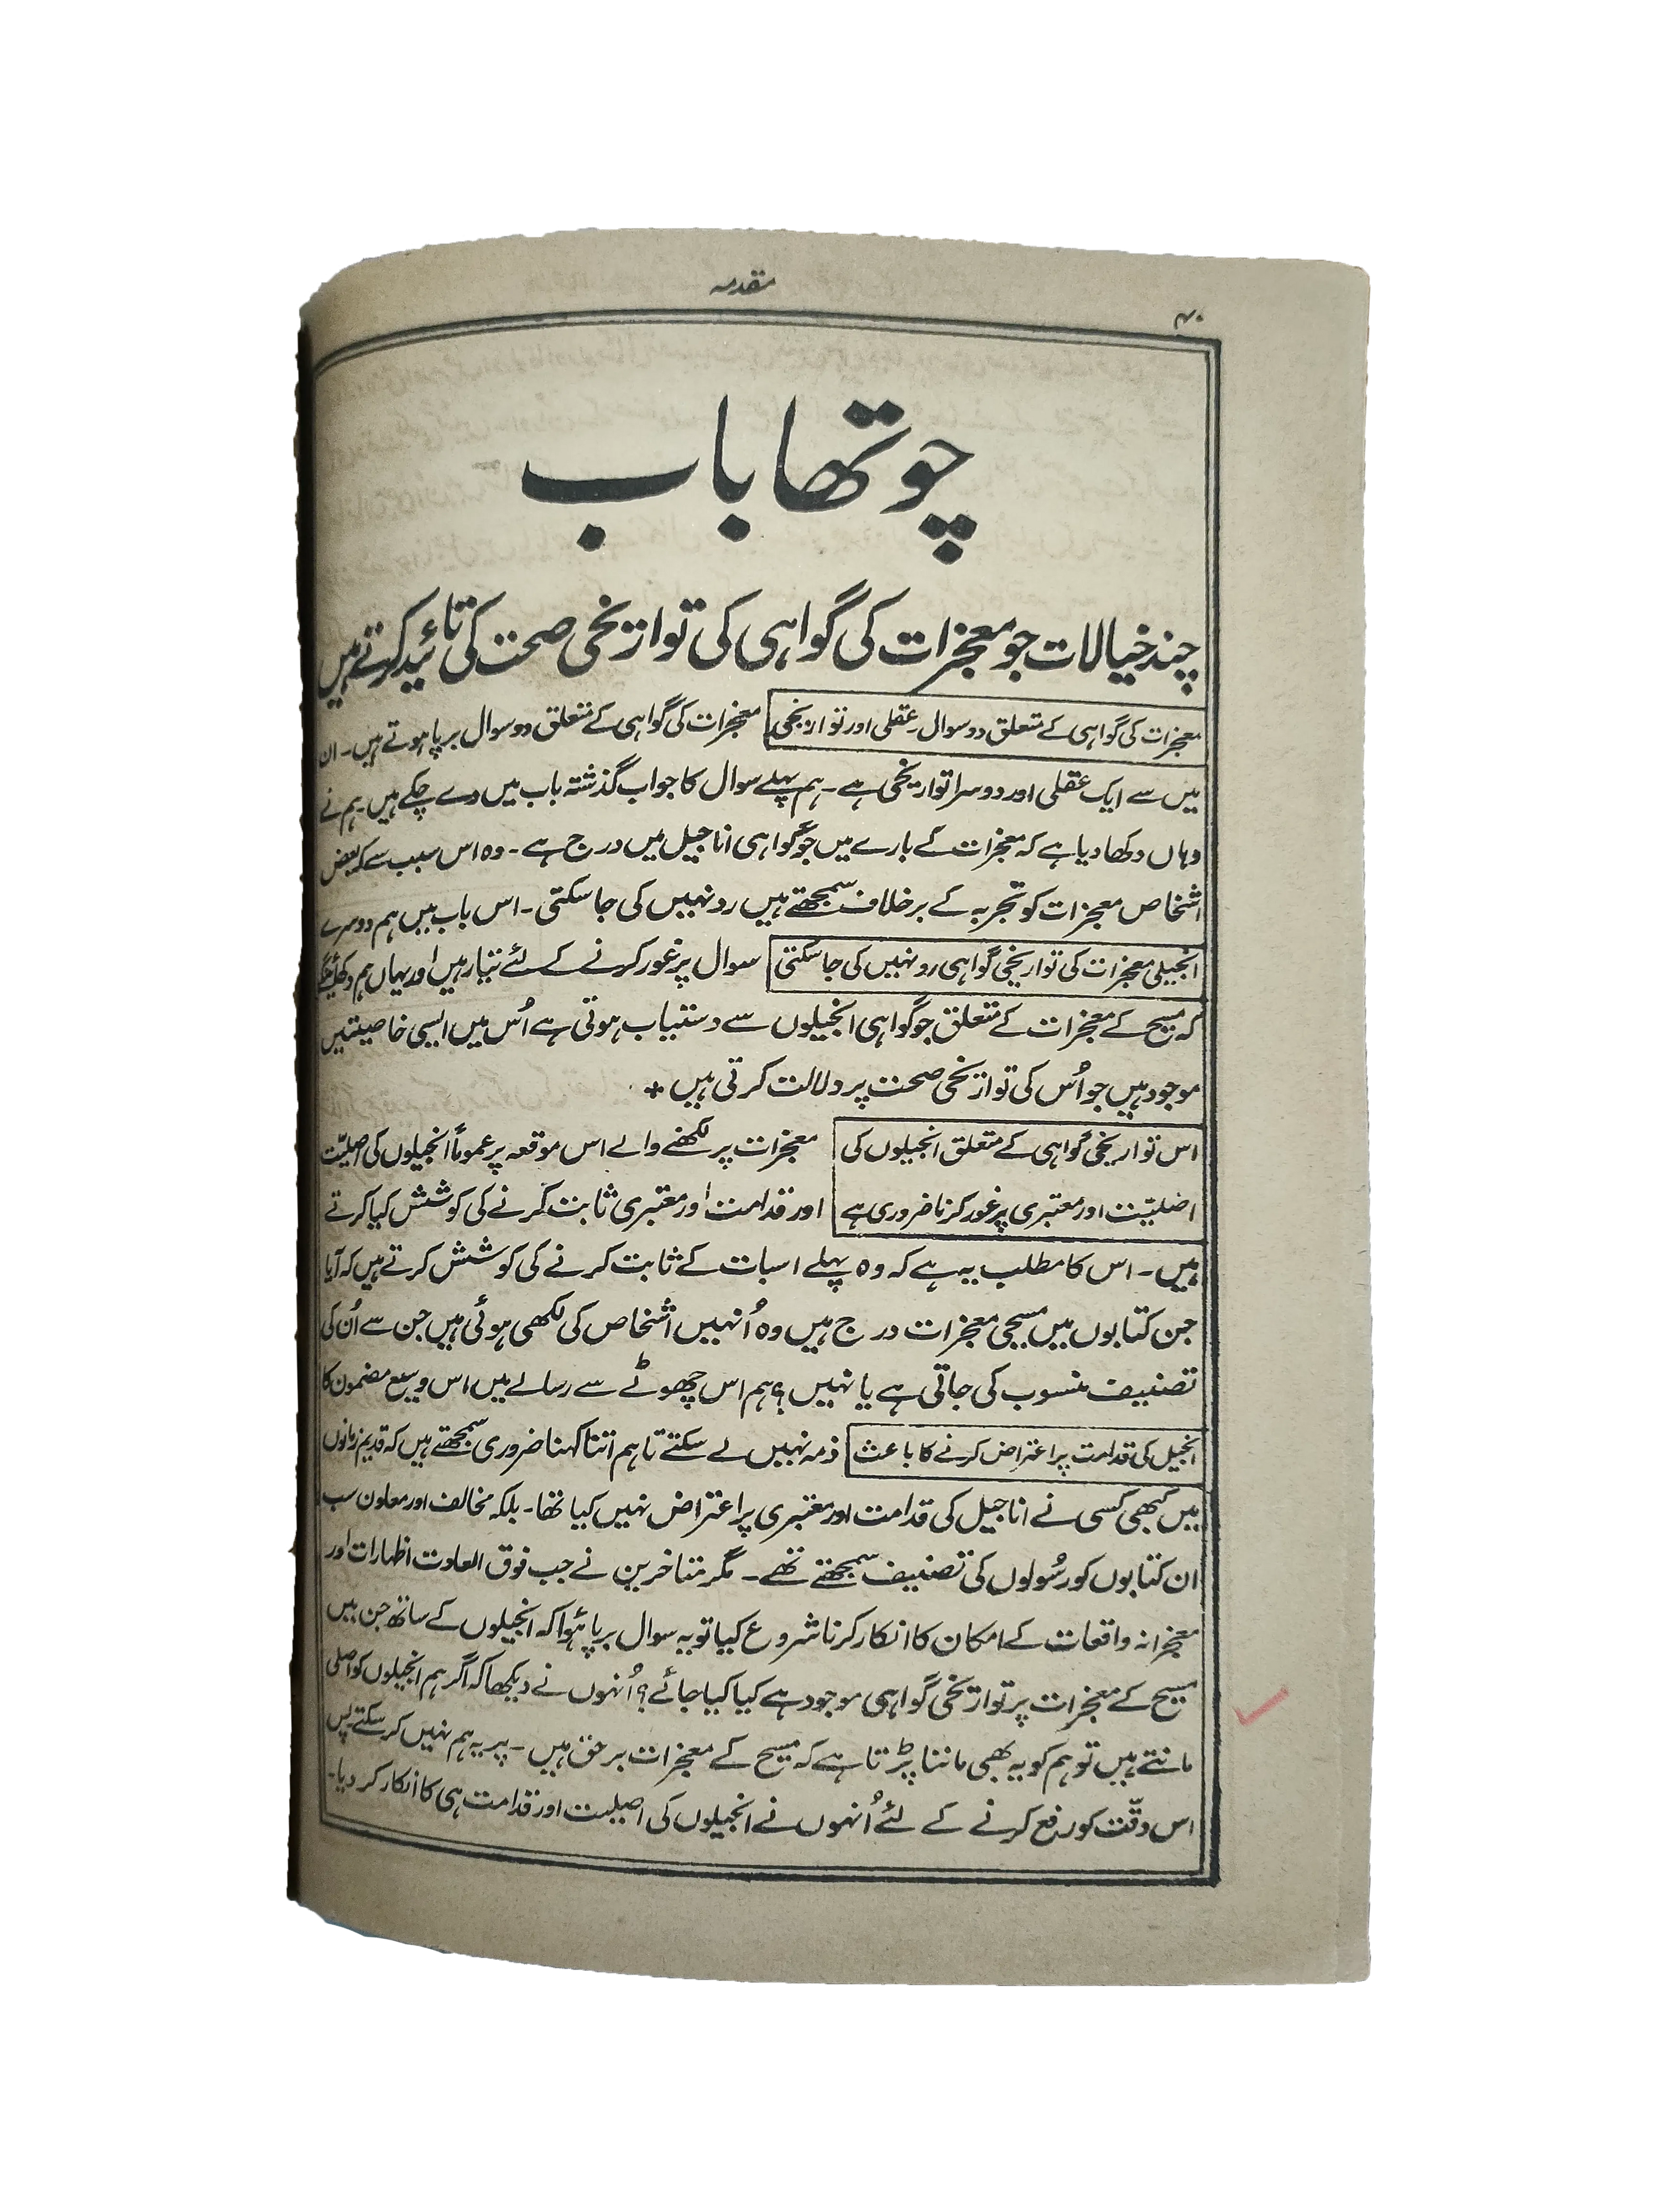 مقدمہ
۴۰
چوتھا باب
چند خیالات جو معجزات کی گواہی کی تواریخی صحت کی تائید کرتے ہیں
معجزات کی گواہی کے متعلق دو سوال۔ عقلی اور تواریخی معجزات کی گواہی کے متعلق دو سوال برپا ہوتے ہیں۔ ان
میں سے ایک عقلی اور دوسرا تواریخی ہے۔ ہم پہلے سوال کا جواب گذشتہ باب میں دے چکے ہیں۔ ہم نے
وہاں دکھا دیا ہے کہ معجزات کے بارے میں جو گواہی اناجیل میں درج ہے۔ وہ اس سبب سے کہ بعض
اشخاص معجزات کو تجربہ کے برخلاف سمجھتے ہیں رد نہیں کی جا سکتی۔ اس باب میں ہم دوسرے
انجیلی معجزات کی تواریخی گواہی رد نہیں کی جا سکتی سوال پر غور کرنے کے لئے تیار ہیں اور یہاں ہم دکھائینگے
کہ مسیح کے معجزات کے متعلق جو گواہی انجیلوں سے دستیاب ہوتی ہے اُس میں ایسی خاصیتیں
موجود ہیں جو اُس کی تواریخی صحت پر دلالت کرتی ہیں +
اس تواریخی گواہی کے متعلق انجیلوں کی معجزات پر لکھنے والے اس موقعہ پر عموماً انجیلوں کی اصلیّت
اصلیّت اور معتبری پر غور کرنا ضروری ہے اور قدامت اور معتبری ثابت کرنے کی کوشش کیا کرتے
ہیں۔ اس کا مطلب یہ ہے کہ وہ پہلے اسبات کے ثابت کرنے کی کوشش کرتے ہیں کہ آیا
جن کتابوں میں مسیحی معجزات درج ہیں وہ اُنہیں اشخاص کی لکھی ہوئی ہیں جن سے اُن کی
تصنیف منسوب کی جاتی ہے یا نہیں؟ ہم اس چھوٹے سے رسالے میں اس وسیع مضمون کا
انجیل کی قدامت پر اعتراض کرنے کا باعث ذمہ نہیں لے سکتے تاہم اتنا کہنا ضروری سمجھتے ہیں کہ قدیم زمانوں
میں کبھی کسی نے اناجیل کی قدامت اور معتبری پر اعتراض نہیں کیا تھا۔ بلکہ مخالف اور معاون سب
ان کتابوں کو رسُولوں کی تصنیف سمجھتے تھے۔ مگر متاخرین نے جب فوق العادت اظہارات اور
معجزانہ واقعات کے امکان کا انکار کرنا شروع کیا تو یہ سوال برپا ہُوا کہ انجیلوں کے ساتھ جن میں
مسیح کے معجزات پر تواریخی گواہی موجود ہے کیا کیا جائے؟ اُنہوں نے دیکھا کہ اگر ہم انجیلوں کو اصلی
مانتے ہیں تو ہم کو یہ بھی ماننا پڑتا ہے کہ مسیح کے معجزات برحق ہیں۔ پر یہ ہم نہیں کر سکتے پس
اس دقّت کو رفع کرنے کے لئے اُنہوں نے انجیلوں کی اصلیت اور قدامت ہی کا انکار کر دیا۔